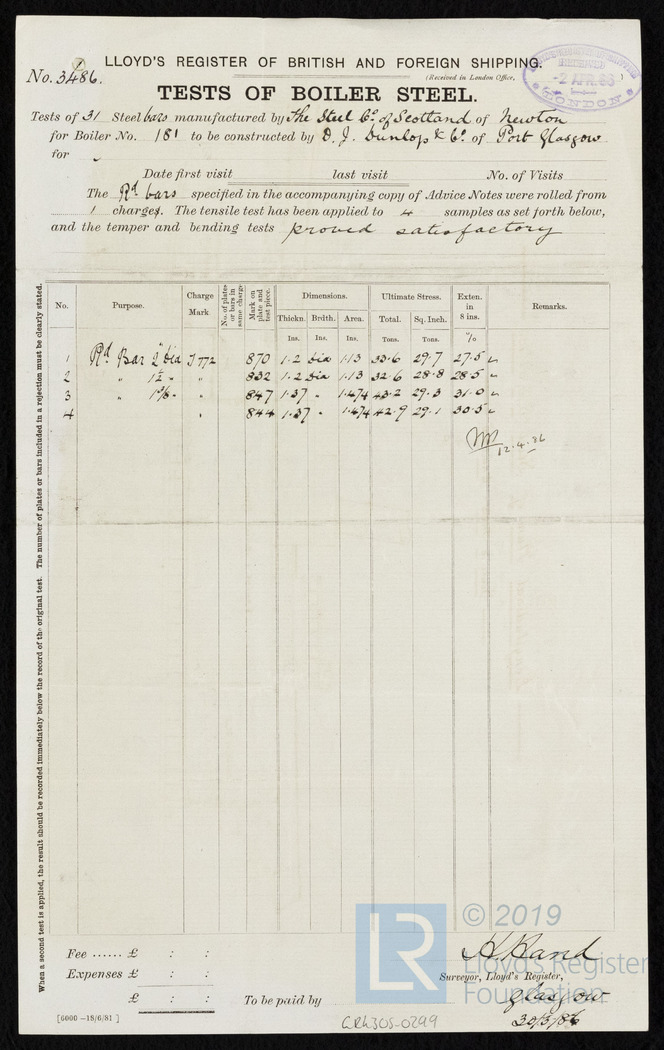 LLOYD'S REGISTER OF BRITISH AND FOREIGN SHIPPING.
No. 3486.
(Received in London Office,
)
RECEIVED
2 APR. 86
LONDON
TESTS OF BOILER STEEL.
Tests of 31 Steel bars manufactured by The Steel Co. of Scotland of Newton
for Boiler No. 181 to be constructed by D. J. Dunlop & Co. of Port Glasgow
for
Date first visit last visit No. of Visits
The Rd bars specified in the accompanying copy of Advice Notes were rolled from
1 charges. The tensile test has been applied to 4 samples as set forth below,
and the temper and bending tests proved satisfactory
When a second test is applied, the result should be recorded immediately below the record of the original test. The number of plates or bars included in a rejection must be clearly stated.
No. Purpose. Charge Mark No. of plates or bars in same charge Mark on plate and test piece. Dimensions. Ultimate Stress. Exten. in 8 ins. Remarks.
Thickn. Brdth. Area. Total. Sq. Inch.
Ins. Ins. Ins. Tons. Tons. %
1 Rd Bar 2" dia J772 870 1.2 dia 1.13 33.6 29.7 27.5
2 " 1½ " " 832 1.2 dia 1.13 32.6 28.8 28.5
3 " 1⅜ " " 847 1.37 " 1.474 43.2 29.3 31.0
4 " 844 1.37 " 1.474 42.9 29.1 30.5
12.4.86
Fee ...... £ : :
Expenses £ : :
£ : :
To be paid by
H. Hand
Surveyor, Lloyd's Register,
Glasgow
30/3/86
[6000 —18/6/81]
GRK305-0299
LR
© 2019
Lloyd's Register
Foundation